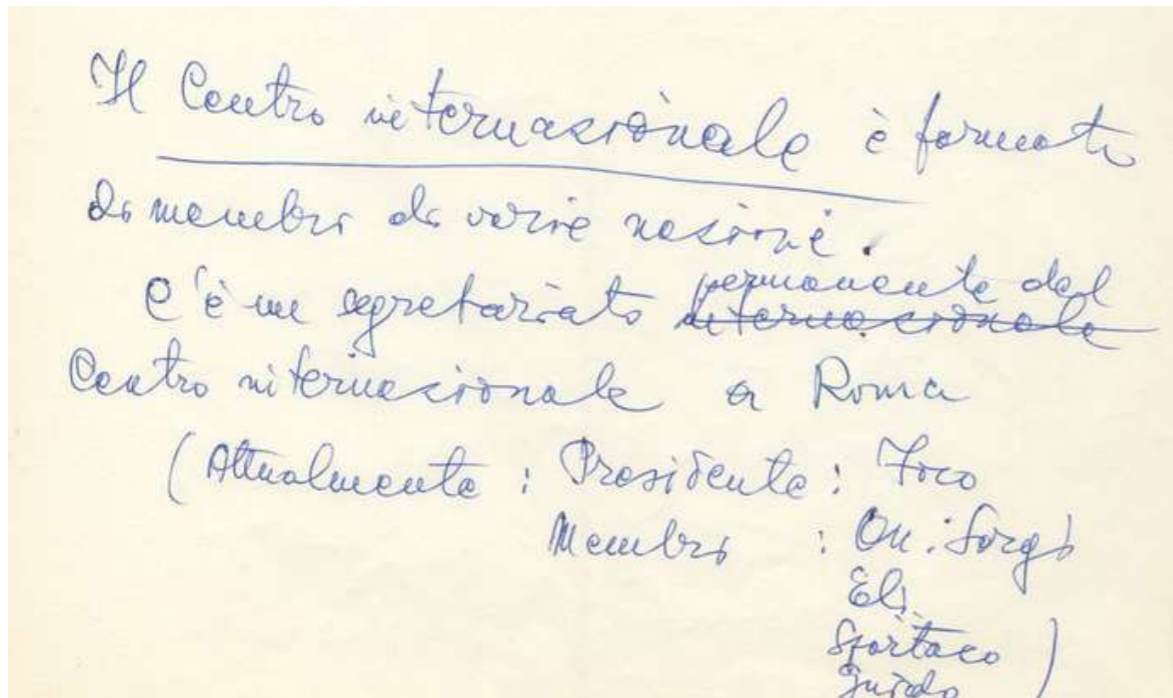 Il Centro internazionale è formato
di membri di varie nazioni.
C'è un segretariato permanente del
internazionale
Centro internazionale a Roma
(Attualmente: Presidente: Foco
Membri: On. Sorgi
Eli
Spartaco)
Guido